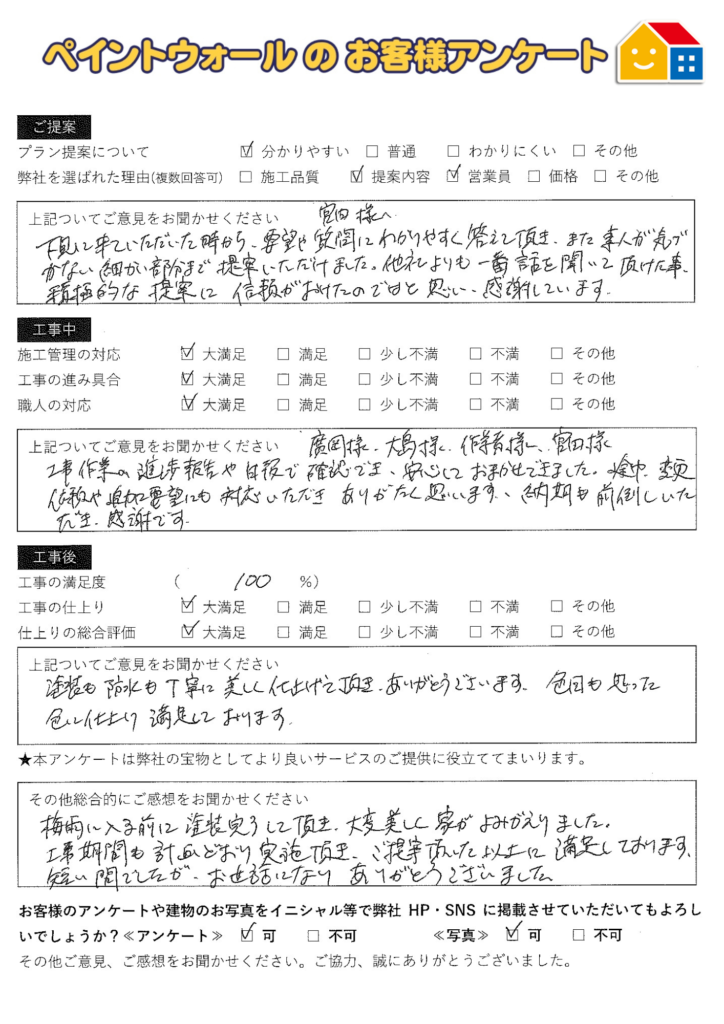 ペイントウォール の お客様アンケート
ご提案
プラン提案について ☑ 分かりやすい □ 普通 □ わかりにくい □ その他
弊社を選ばれた理由(複数回答可) □ 施工品質 ☑ 提案内容 ☑ 営業員 □ 価格 □ その他
上記ついてご意見をお聞かせください 宮田様へ
下見に来ていただいた時から、要望や質問にわかりやすく答えて頂き、また素人が気づ
かない細かい部分まで提案いただけました。他社よりも一番話を聞いて頂けた事、
積極的な提案に信頼がおけたのでは と思い、感謝しています。
工事中
施工管理の対応 ☑ 大満足 □ 満足 □ 少し不満 □ 不満 □ その他
工事の進み具合 ☑ 大満足 □ 満足 □ 少し不満 □ 不満 □ その他
職人の対応 ☑ 大満足 □ 満足 □ 少し不満 □ 不満 □ その他
上記ついてご意見をお聞かせください 廣岡様、大島様、作業者様へ、宮田様
工事作業の進捗報告や日報で確認でき、安心しておまかせできました。途中、変更
依頼や追加要望にも対応いただきありがたく思います、納期も前倒しいた
だき、感謝です。
工事後
工事の満足度 ( 100 %)
工事の仕上り ☑ 大満足 □ 満足 □ 少し不満 □ 不満 □ その他
仕上りの総合評価 ☑ 大満足 □ 満足 □ 少し不満 □ 不満 □ その他
上記ついてご意見をお聞かせください
塗装も防水も丁寧に美しく仕上げて頂き、ありがとうございます。色目も思った
色に仕上り満足しております。
★本アンケートは弊社の宝物としてより良いサービスのご提供に役立ててまいります。
その他総合的にご感想をお聞かせください
梅雨に入る前に塗装完了して頂き、大変美しく家がよみがえりました。
工事期間も計画どおり実施頂き、ご提案頂いた以上に満足しております、
短い間でしたが、お世話になりありがとうございました
お客様のアンケートや建物のお写真をイニシャル等で弊社 HP・SNS に掲載させていただいてもよろし
いでしょうか？≪アンケート≫ ☑ 可 □ 不可 ≪写真≫ ☑ 可 □ 不可
その他ご意見、ご感想をお聞かせください。ご協力、誠にありがとうございました。